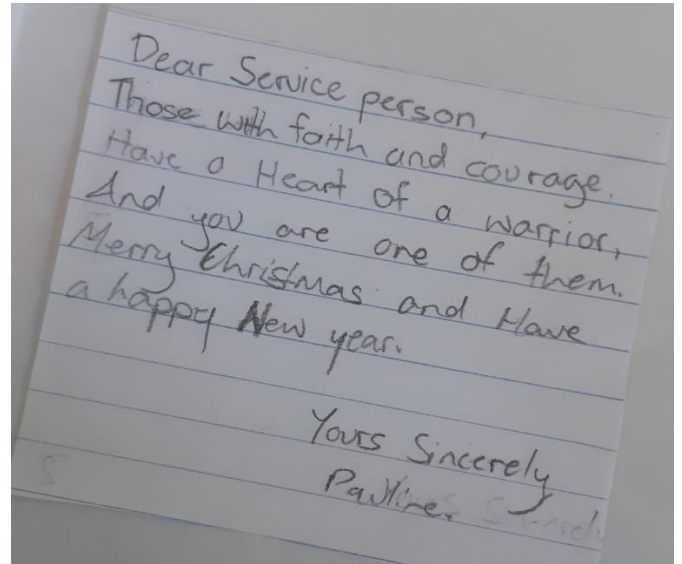 Dear Service person,
Those with faith and courage.
Have a Heart of a warrior,
And you are one of them.
Merry Christmas and Have
a happy New year.
Yours Sincerely
Pauline.